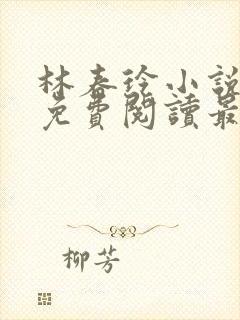 林春徐小說
免費閱讀最
柳芳